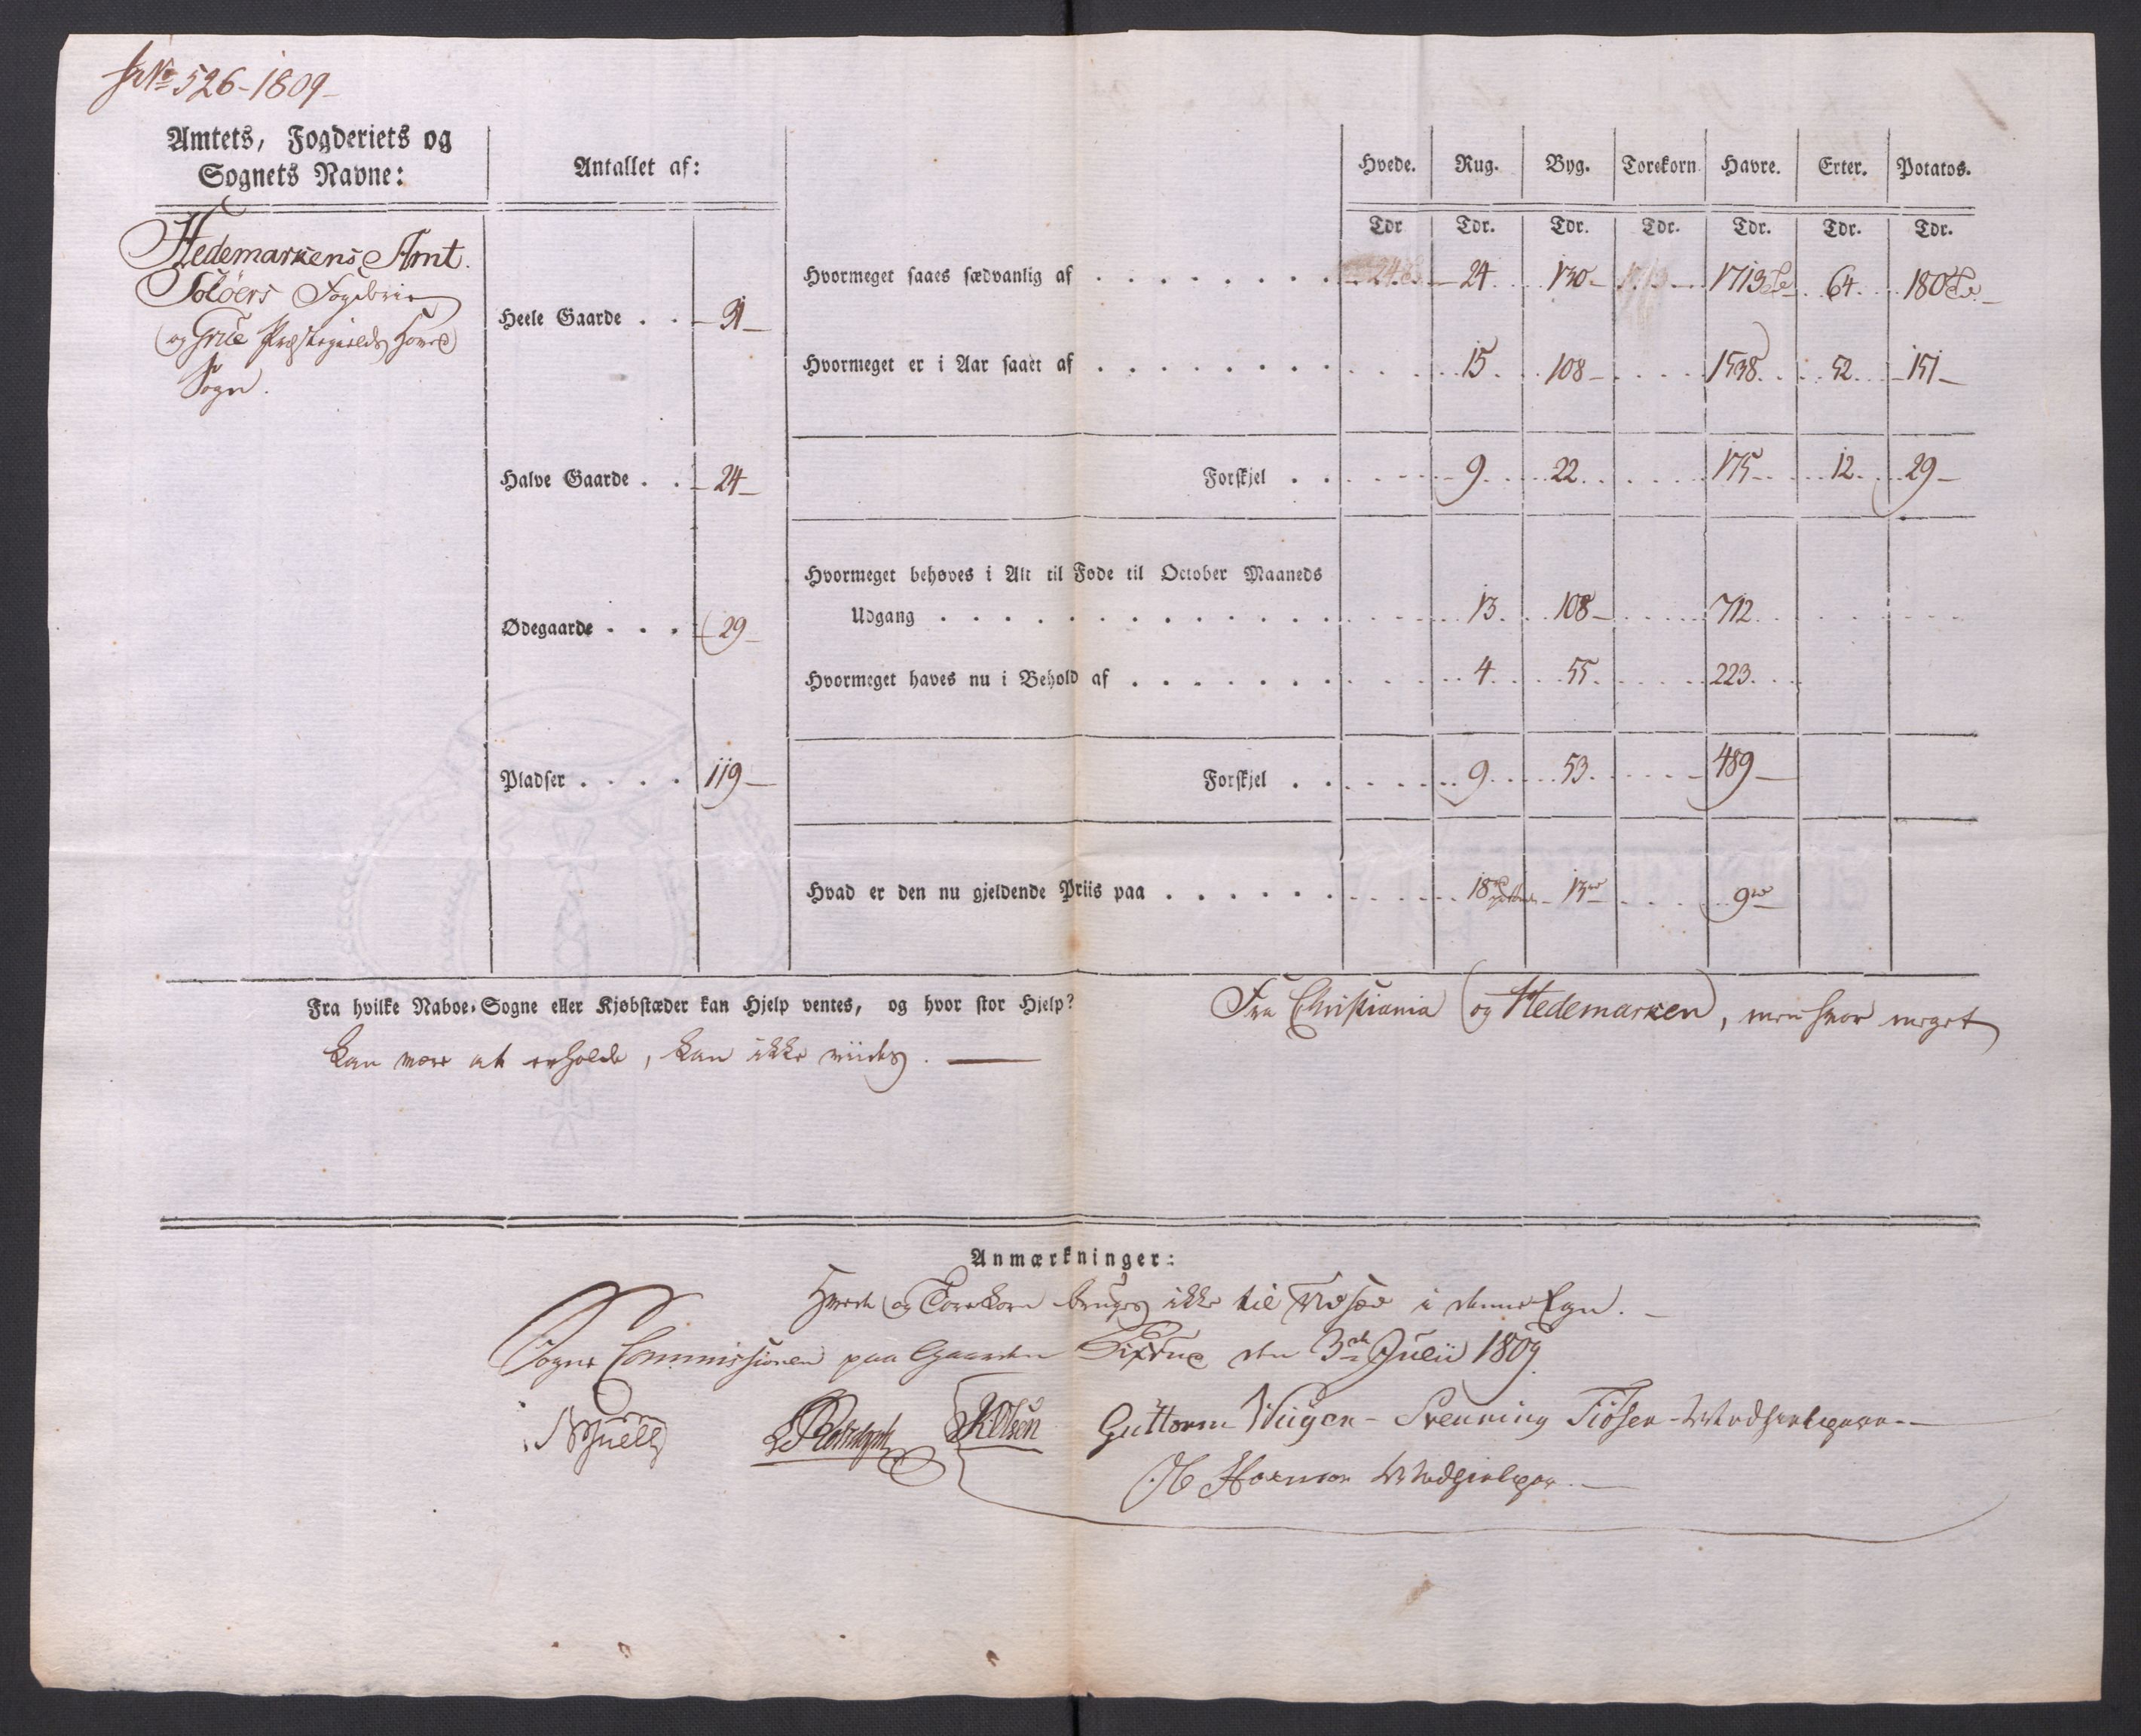 No 526-1809
Amtets, Fogderiets og
Sognets Navne:
Antallet af:
Hvede. Rug. Byg. Torekorn Havre. Erter. Potatos.
Tdr Tdr. Tdr. Tdr. Tdr. Tdr. Tdr.
Hedemarkens Amt.
Soløers Fogderie
og Grue Præstegields Hoved
Sogn.
Heele Gaarde . . 91
Halve Gaarde . . 24
Ødegaarde . . . 29
Pladser . . . . 119
Hvormeget saaes sædvanlig af 24 130 1713 64. 180
Hvormeget er i Aar saaet af 15 108 1538 52 151
Forskjel . . 9 22 175 12 29
Hvormeget behøves i Alt til Føde til October Maaneds
Udgang 13 108 712
Hvormeget haves nu i Behold af 4 55 223
Forskjel . . 9 53 489
Hvad er den nu gjeldende Priis paa 18 13 9
Fra hvilke Naboe-Sogne eller Kjøbstæder kan Hjelp ventes, og hvor stor Hjelp? Fra Christiania og Hedemarken, men hvor meget
kan være at erholde, kan ikke viides.
Anmærkninger:
Hvede og Torekorn bruges ikke til Udsæd i denne Egn.
Sogne Commissionen paa Gaarden den 3de Julii 1809
Juell Olsen Guttorm Wiigen - Svenning